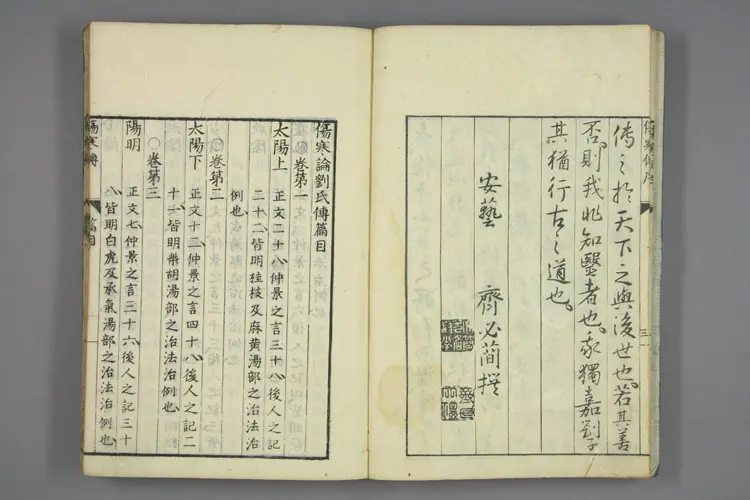 傳之於天下之與後世也。若其善
否。則我非知醫者也。我獨嘉劉子
其猶行古之道也。
安藝 齊必簡撰
傷寒論劉氏傳篇目
卷第一
太陽上 正文二十八。仲景之言三十八。後人之記
二十二。皆明桂枝及麻黃湯部之治法治
例也。
卷第二
太陽下 正文十二。仲景之言四十八。後人之記二
十一。皆明柴胡湯部之治法治例也。
〇卷第三
陽明 正文七。仲景之言三十六。後人之記三十
八。皆明白虎及承氣湯部之治法治例也。
傷寒傳 篇目